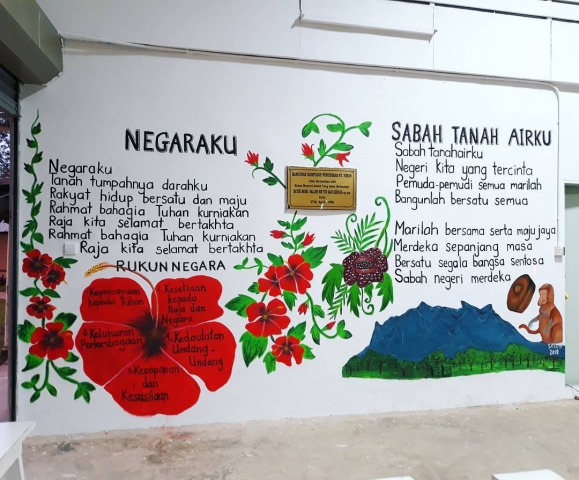 NEGARAKU
Negaraku
Tanah tumpahnya darahku
Rakyat hidup bersatu dan maju
Rahmat bahagia Tuhan kurniakan
Raja kita selamat bertakhta
Rahmat bahagia Tuhan kurniakan
Raja kita selamat bertakhta
RUKUN NEGARA
Kepercayaan
kepada Tuhan
Kesetiaan
kepada
Raja dan
Negara
Keluhuran
Perlembagaan
Kedaulatan
Undang-
Undang
Kesopanan
dan
Kesusilaan
SABAH TANAH AIRKU
Sabah tanahairku
Negeri kita yang tercinta
Pemuda-pemudi semua marilah
Bangunlah bersatu semua
Marilah bersama serta maju jaya
Merdeka sepanjang masa
Bersatu segala bangsa sentosa
Sabah negeri merdeka
2018